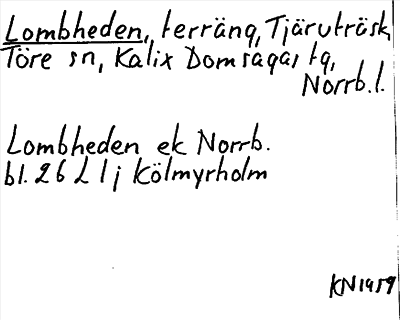 Lombheden, terräng, Tjäruträsk,
Töre sn, Kalix Domsagas tg,
Norrb. l.
Lombheden ek Norrb.
bl. 26 L 1 j Kölmyrholm
KN 1959